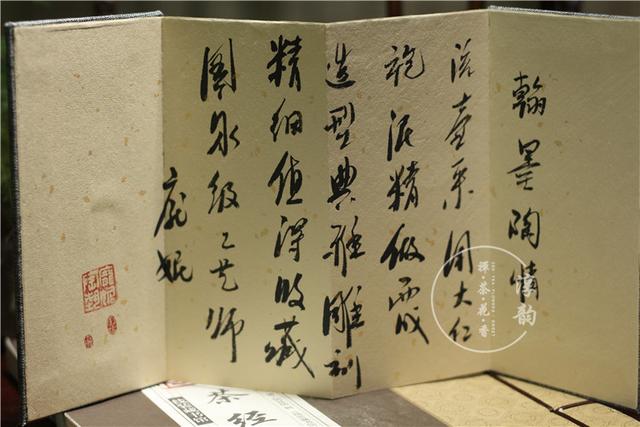 翰墨陶情韵
该壶采用大红
袍泥精做而成
造型典雅雕刻
精细值得收藏
国家级工艺师
庞妮
禪·茶·花·香
茶经